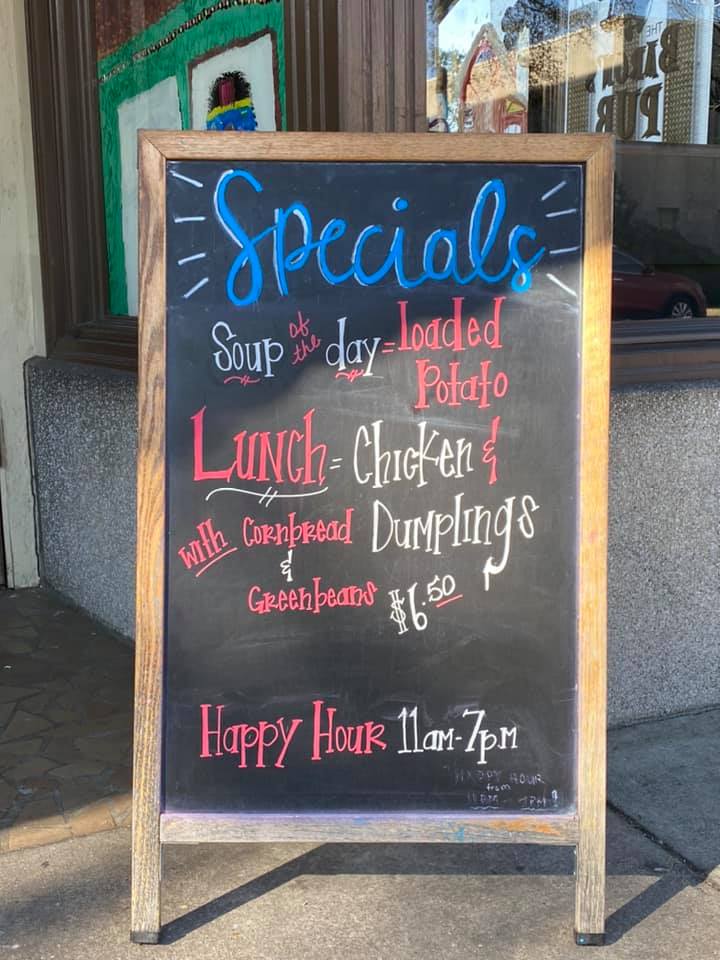 THE
BARON'S
PUB
Specials
Soup of the day = Loaded
Potato
LUNCh = Chicken &
with Cornbread Dumplings
&
Greenbeans $6.50
Happy Hour 11am-7pm
HAPPY HOUR
from
11AM - 7PM!